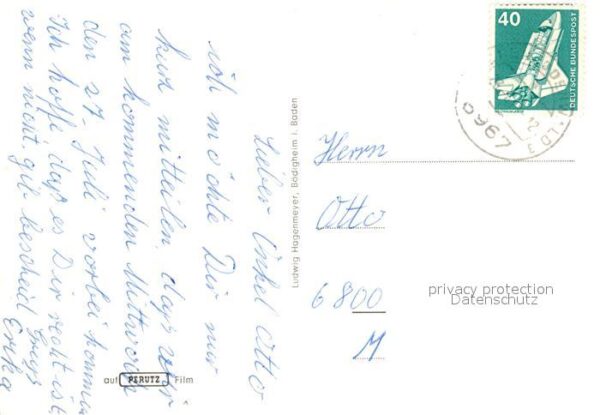 Lieber Onkel Otto
ich möchte Dir nur
kurz mitteilen, dass wir
am kommenden Mittwoch
den 27. Juli vorbei kommen
Ich hoffe, daß es Dir recht ist
wenn nicht, gib bescheid Gruß
Erika
Ludwig Hagenmeyer, Bödigheim i. Baden
auf PERUTZ Film
40
DEUTSCHE BUNDESPOST
6967
Herrn
Otto
6800
M
privacy protection
Datenschutz